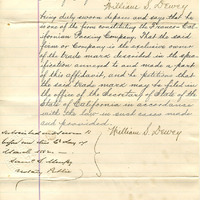 William S. Dewey
being duly sworn deposes and says that he
is one of the firm constituting the Cal-
ifornian Packing Company. That the said
firm or Company is the exclusive owner
of the trade mark described in the spe-
cification annexed to and made a part
of this affidavit, and he petitions that
the said trade mark may be filed in
the office of the Secretary of State of the
State of California in accordance
with the law in such cases made
and provided.
William S. Dewey
Subscribed and sworn to
before me this day of
A.D. 188
Samuel S.
Notary Public